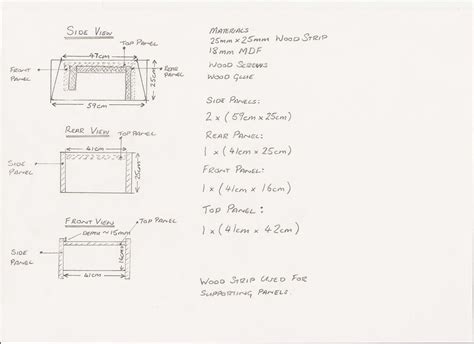 SIDE VIEW
TOP PANEL
47cm
FRONT PANEL
REAR PANEL
25cm
59cm
REAR VIEW
TOP PANEL
41cm
SIDE PANEL
25cm
FRONT VIEW
DEPTH ~15mm
TOP PANEL
SIDE PANEL
16cm
41cm
MATERIALS
25mm x 25mm WOOD STRIP
18mm MDF
WOOD SCREWS
WOOD GLUE
SIDE PANELS:
2 x (59cm x 25cm)
REAR PANEL:
1 x (41cm x 25cm)
FRONT PANEL:
1 x (41cm x 16cm)
TOP PANEL:
1 x (41cm x 42cm)
WOOD STRIP USED FOR
SUPPORTING PANELS.